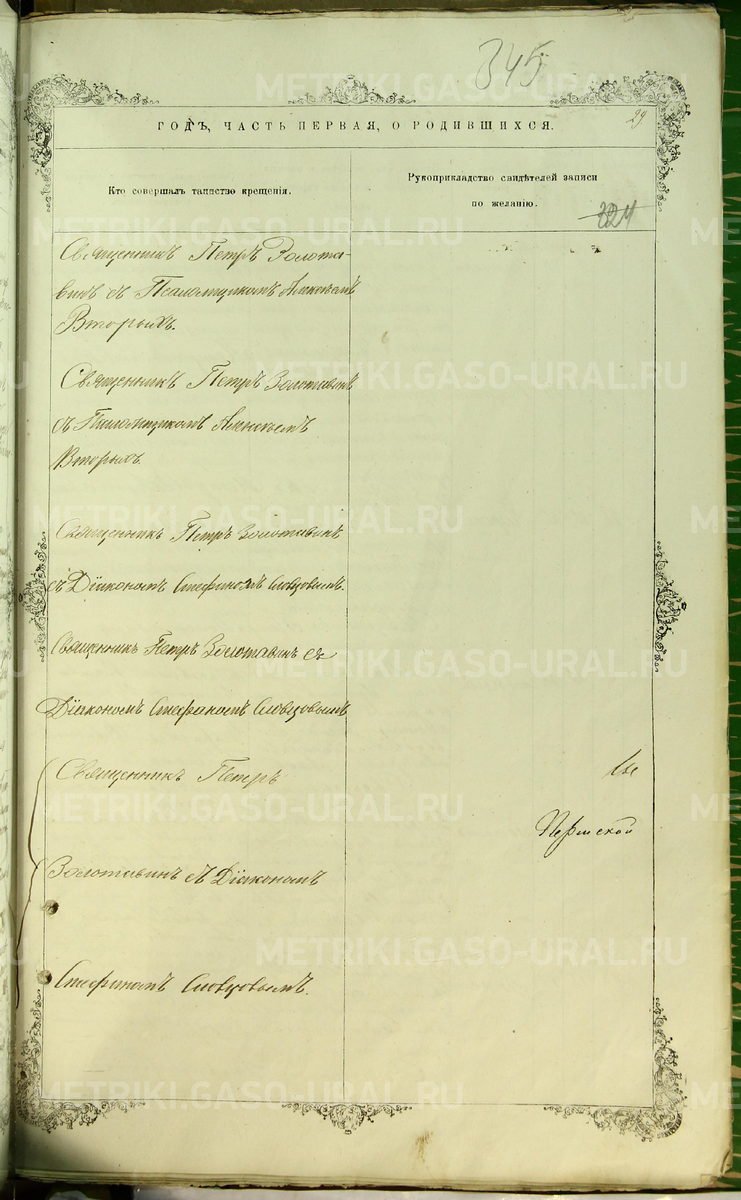 345
ГОДЪ, ЧАСТЬ ПЕРВАЯ, О РОДИВШИХСЯ.
29
Кто совершалъ таинство крещенія.
Рукоприкладство свидѣтелей записи
по желанію.
324
Священникъ Петръ Золота-
винъ съ Псаломщикомъ Алексѣемъ
Вторыхъ.
Священникъ Петръ Золотавинъ
съ Псаломщикомъ Алексѣемъ
Вторыхъ.
Священникъ Петръ Золотавинъ
съ Діакономъ Стефаномъ Словцовымъ.
Священникъ Петръ Золотавинъ съ
Діакономъ Стефаномъ Словцовымъ
Священникъ Петръ
Пермской
Золотавинъ съ Діакономъ
Стефаномъ Словцовымъ.
METRIKI.GASO-URAL.RU